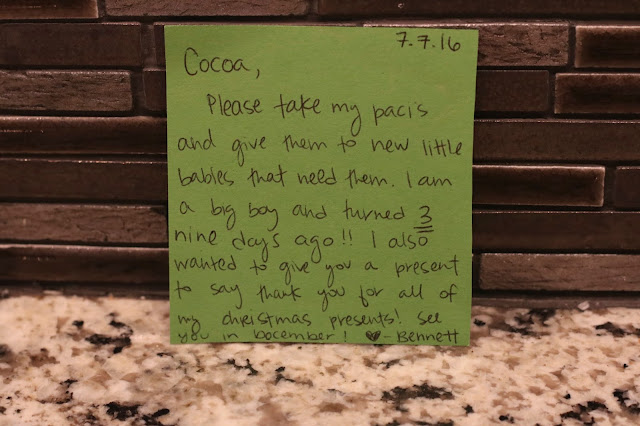 7.7.16
Cocoa,
Please take my paci's
and give them to new little
babies that need them. I am
a big boy and turned 3
nine days ago!! I also
wanted to give you a present
to say thank you for all of
my christmas presents! See
you in Docember! ♥-Bennett